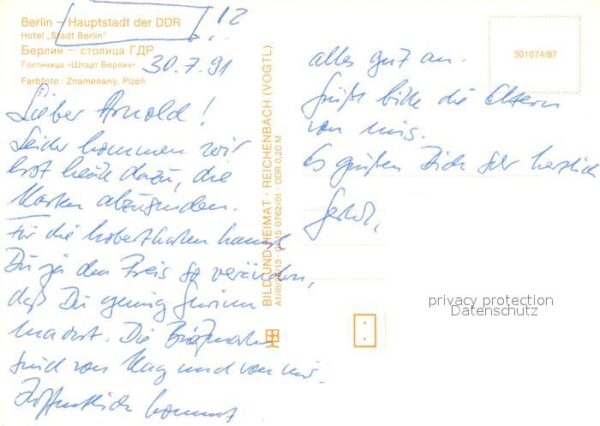 Berlin – Hauptstadt der DDR
!?
Hotel „Stadt Berlin“
Берлин – столица ГДР
Гостиница «Штадт Берлин»
Farbfoto: Znamenany, Plzeň
30.7.91
Lieber Arnold!
Leider kommen wir
erst heute dazu, die
Karten abzusenden.
Für die Hobertkarten kannst
Du ja den Preis so verändern,
daß Du genug Gewinn
machst. Die Briefmarken
sind von Kay und von mir.
Hoffentlich kommt
BILD UND HEIMAT · REICHENBACH (VOGTL)
DDR 0,20 M
301074/87
alles gut an.
Grüße bitte die Eltern
von mir.
Es grüßen Dich sehr herzlich
privacy protection
Datenschutz